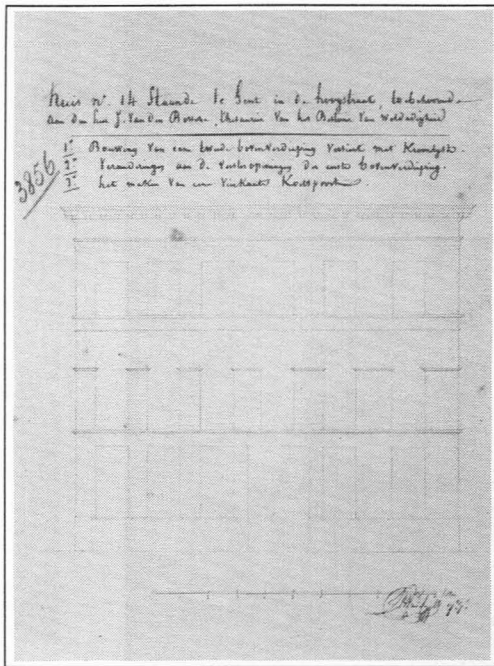 Huis nr. 14 Staande te Gent in de hoogstraat, toebehoorende
Aan den heer J. Van den Bossche, Van het Bureau Van Weldadigheid
1° Bouwing Van een tweede bovenverdieping Versiert met Kroonlyst.
2° Veranderingen aan de vensteropeningen der eerste bovenverdieping.
3° het maken Van een Vierkante Koetspoorte.
3856